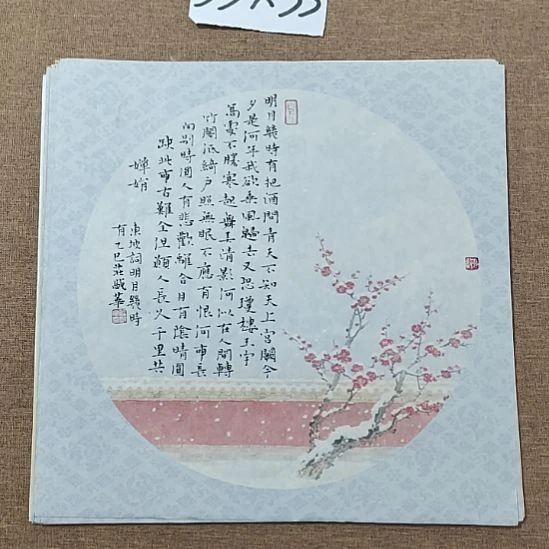 明月幾時有把酒問青天不知天上宮闕今
夕是何年我欲乘風歸去又恐瓊樓玉宇
高處不勝寒起舞弄清影何似在人間轉
閣低綺戶照無眠不應有恨何事長
向别時圓人有悲歡離合月有陰晴圓
缺此事古難全但願人長久千里共
嬋娟
東坡詞明月幾時
有乙巳莊華